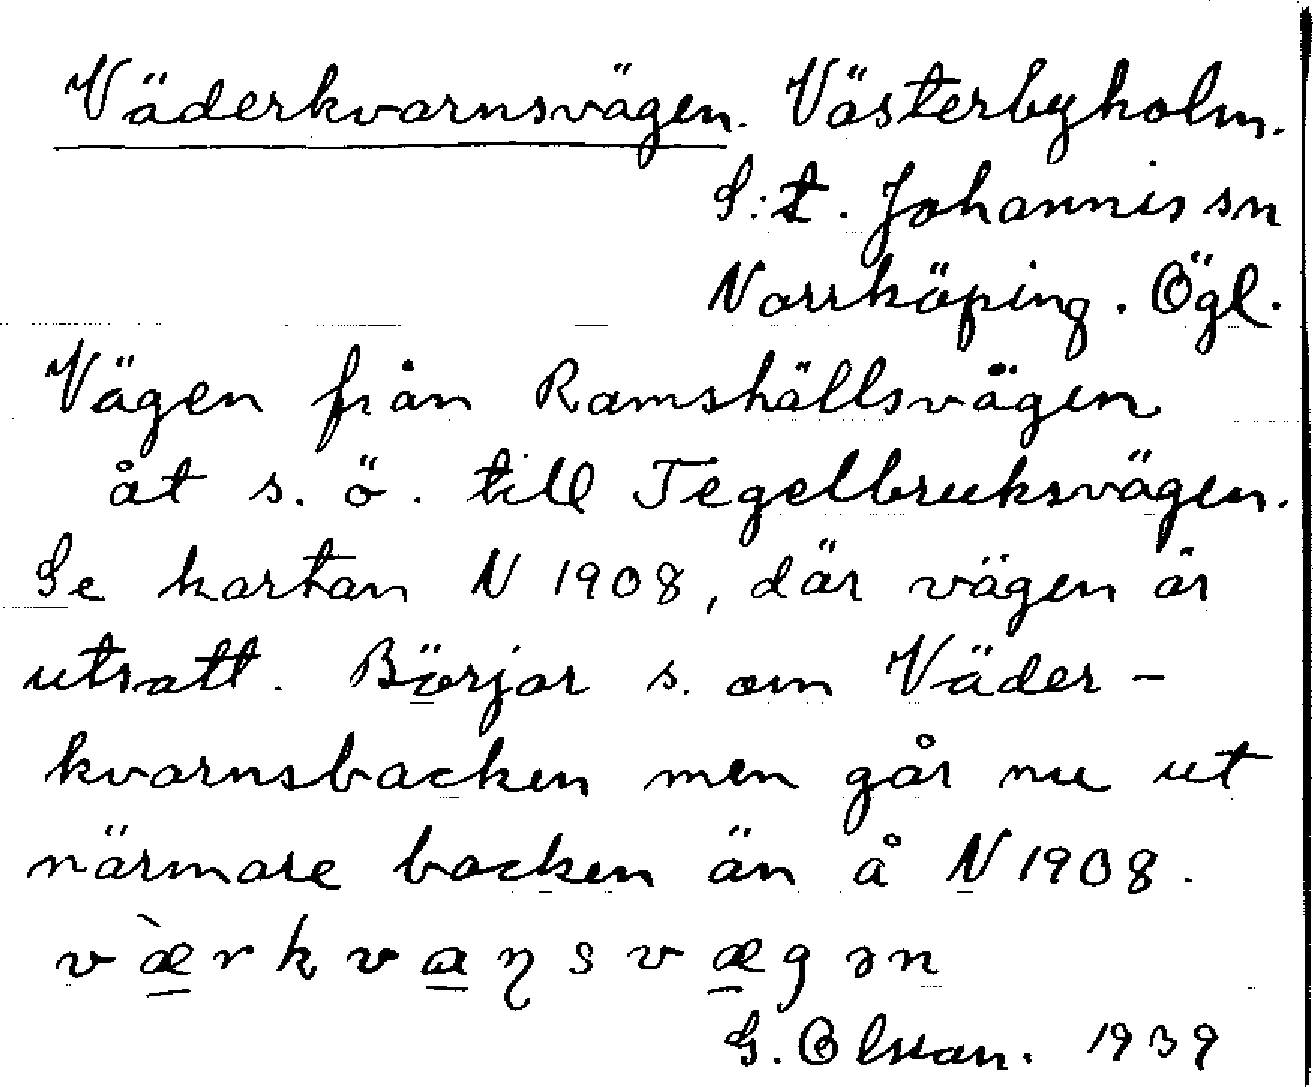 Väderkvarnsvägen. Västerbyholm.
S:t. Johannis sn
Norrköping. Ögl.
Vägen från Ramshällsvägen
åt s. ö. till Tegelbruksvägen.
Se kartan N 1908, där vägen är
utsatt. Börjar s. om Väder-
kvarnsbacken men går nu ut
närmare backen än å N 1908.
v æ̀ r k v a ɳ s v æ g ə n
G. Olsson. 1939